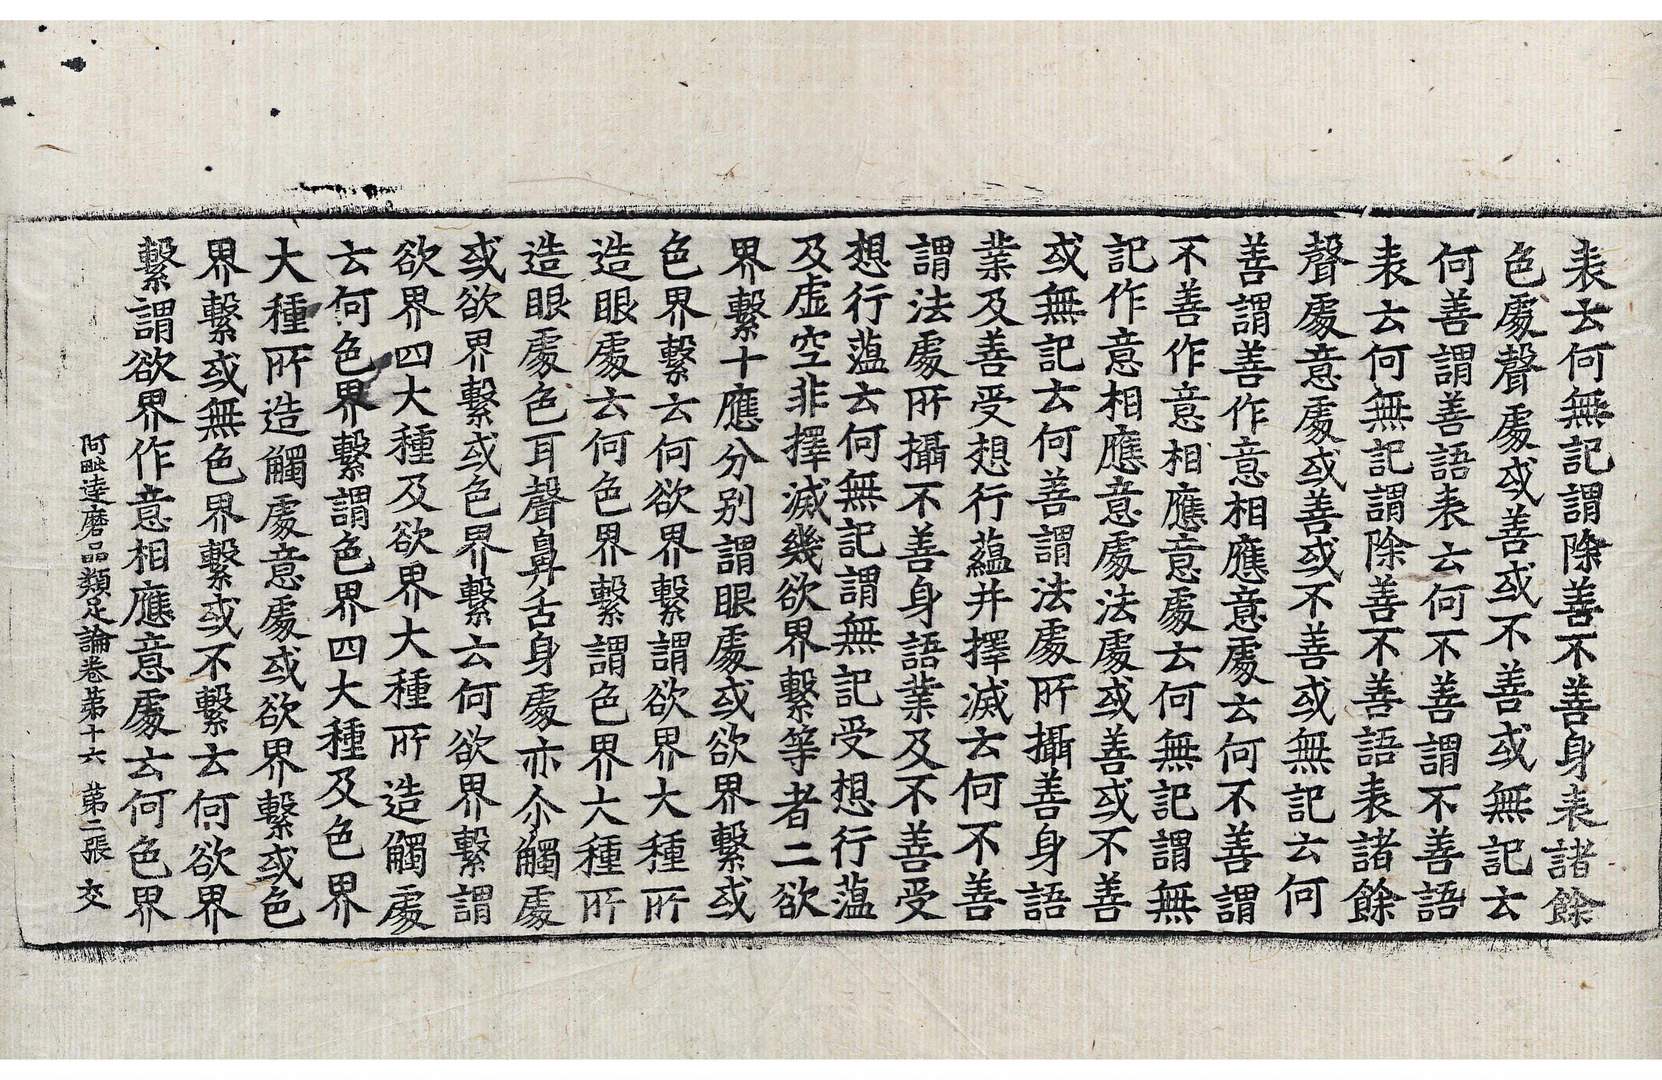 表云何無記謂除善不善身表諸餘
色處聲處或善或不善或無記云
何善謂善語表云何不善謂不善語
表云何無記謂除善不善語表諸餘
聲處意處或善或不善或無記云何
善謂善作意相應意處云何不善謂
不善作意相應意處云何無記謂無
記作意相應意處法處或善或不善
或無記云何善謂法處所攝善身語
業及善受想行蘊并擇滅云何不善
謂法處所攝不善身語業及不善受
想行蕰云何無記謂無記受想行蕰
及虛空非擇滅幾欲界繫等者二欲
界繫十應分別謂眼處或欲界繫或
色界繫云何欲界繫謂欲界大種所
造眼處云何色界繫謂色界大種所
造眼處色耳聲鼻舌身處亦尒觸處
或欲界繫或色界繫云何欲界繫謂
欲界四大種及欲界大種所造觸處
云何色界繫謂色界四大種及色界
大種所造觸處意處或欲界繫或色
界繫或無色界繫或不繫云何欲界
繫謂欲界作意相應意處云何色界
阿毗達磨品類足論卷第十六 第二張 交